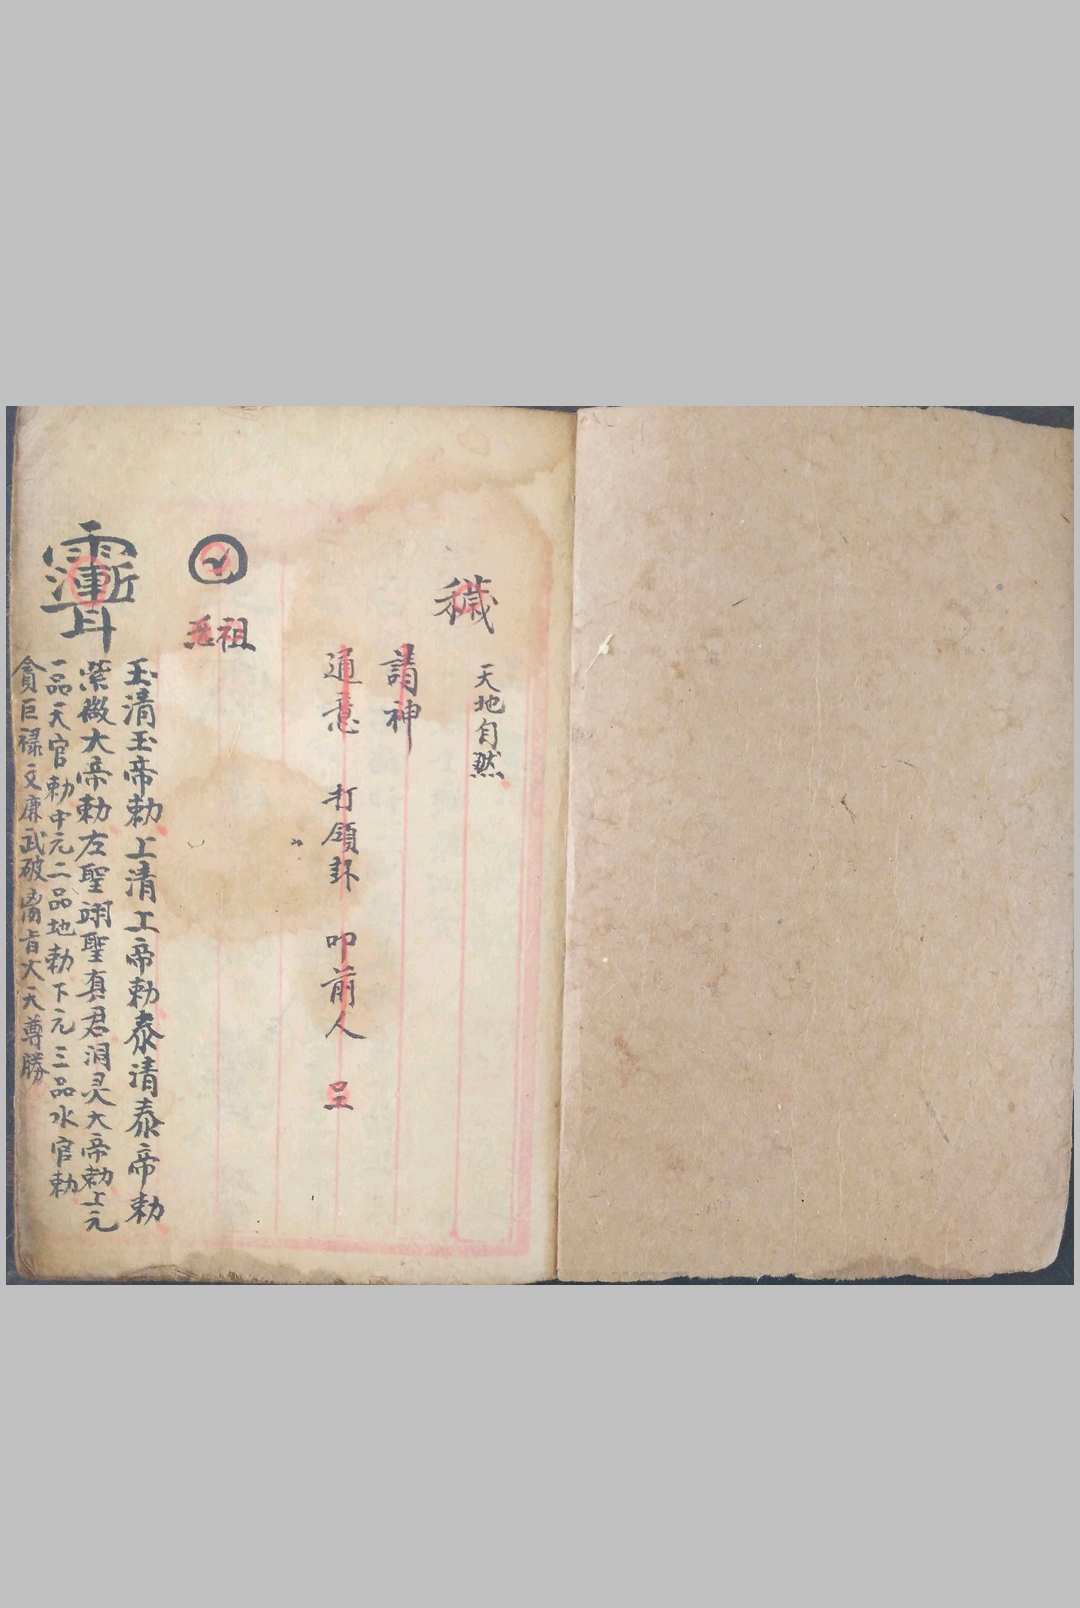 穢
天地自然
請神
通意 打領卦 叩前人 呈
祖
玉清玉帝勅上清上帝勅泰清泰帝勅
紫微大帝勅左聖翊聖真君洞灵大帝勅上元
一品天官勅中元二品地勅下元三品水官勅
貪巨禄文廉武破 大天尊勝